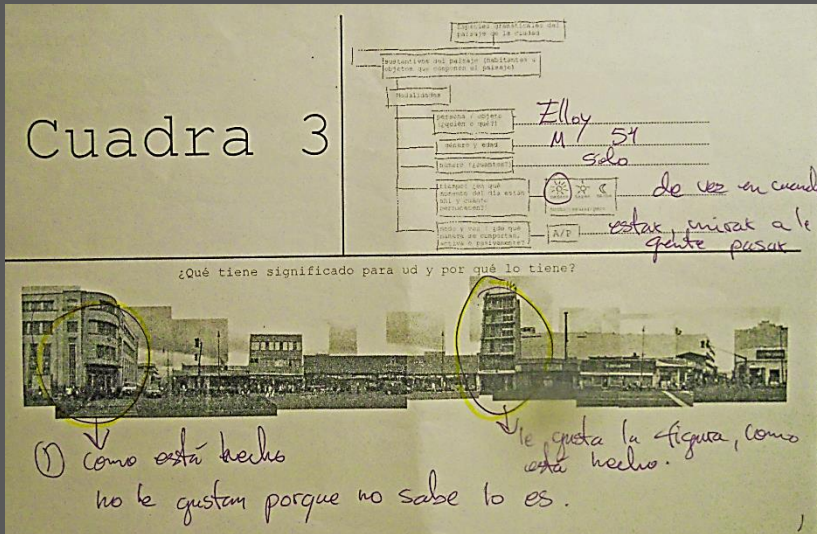 Cuadra 3
Especies gramaticales del
paisaje de la ciudad
sustantivos del paisaje (habitantes u
objetos que componen el paisaje)
Modalidades
persona / objeto
(¿quién o qué?)
Elloy
género y edad
M 54
número (¿cuántos?)
Solo
tiempo (¿en qué
momento del día están
ahí y cuánto
permanecen?)
de vez en cuando
modo y voz (¿de qué
manera se comportan,
activa o pasivamente?)
A/P
estar, mirar a la
gente pasar
¿Qué tiene significado para ud y por qué lo tiene?
① como está hecho
no le gustan porque no sabe lo es.
le gusta la figura, como
está hecho.